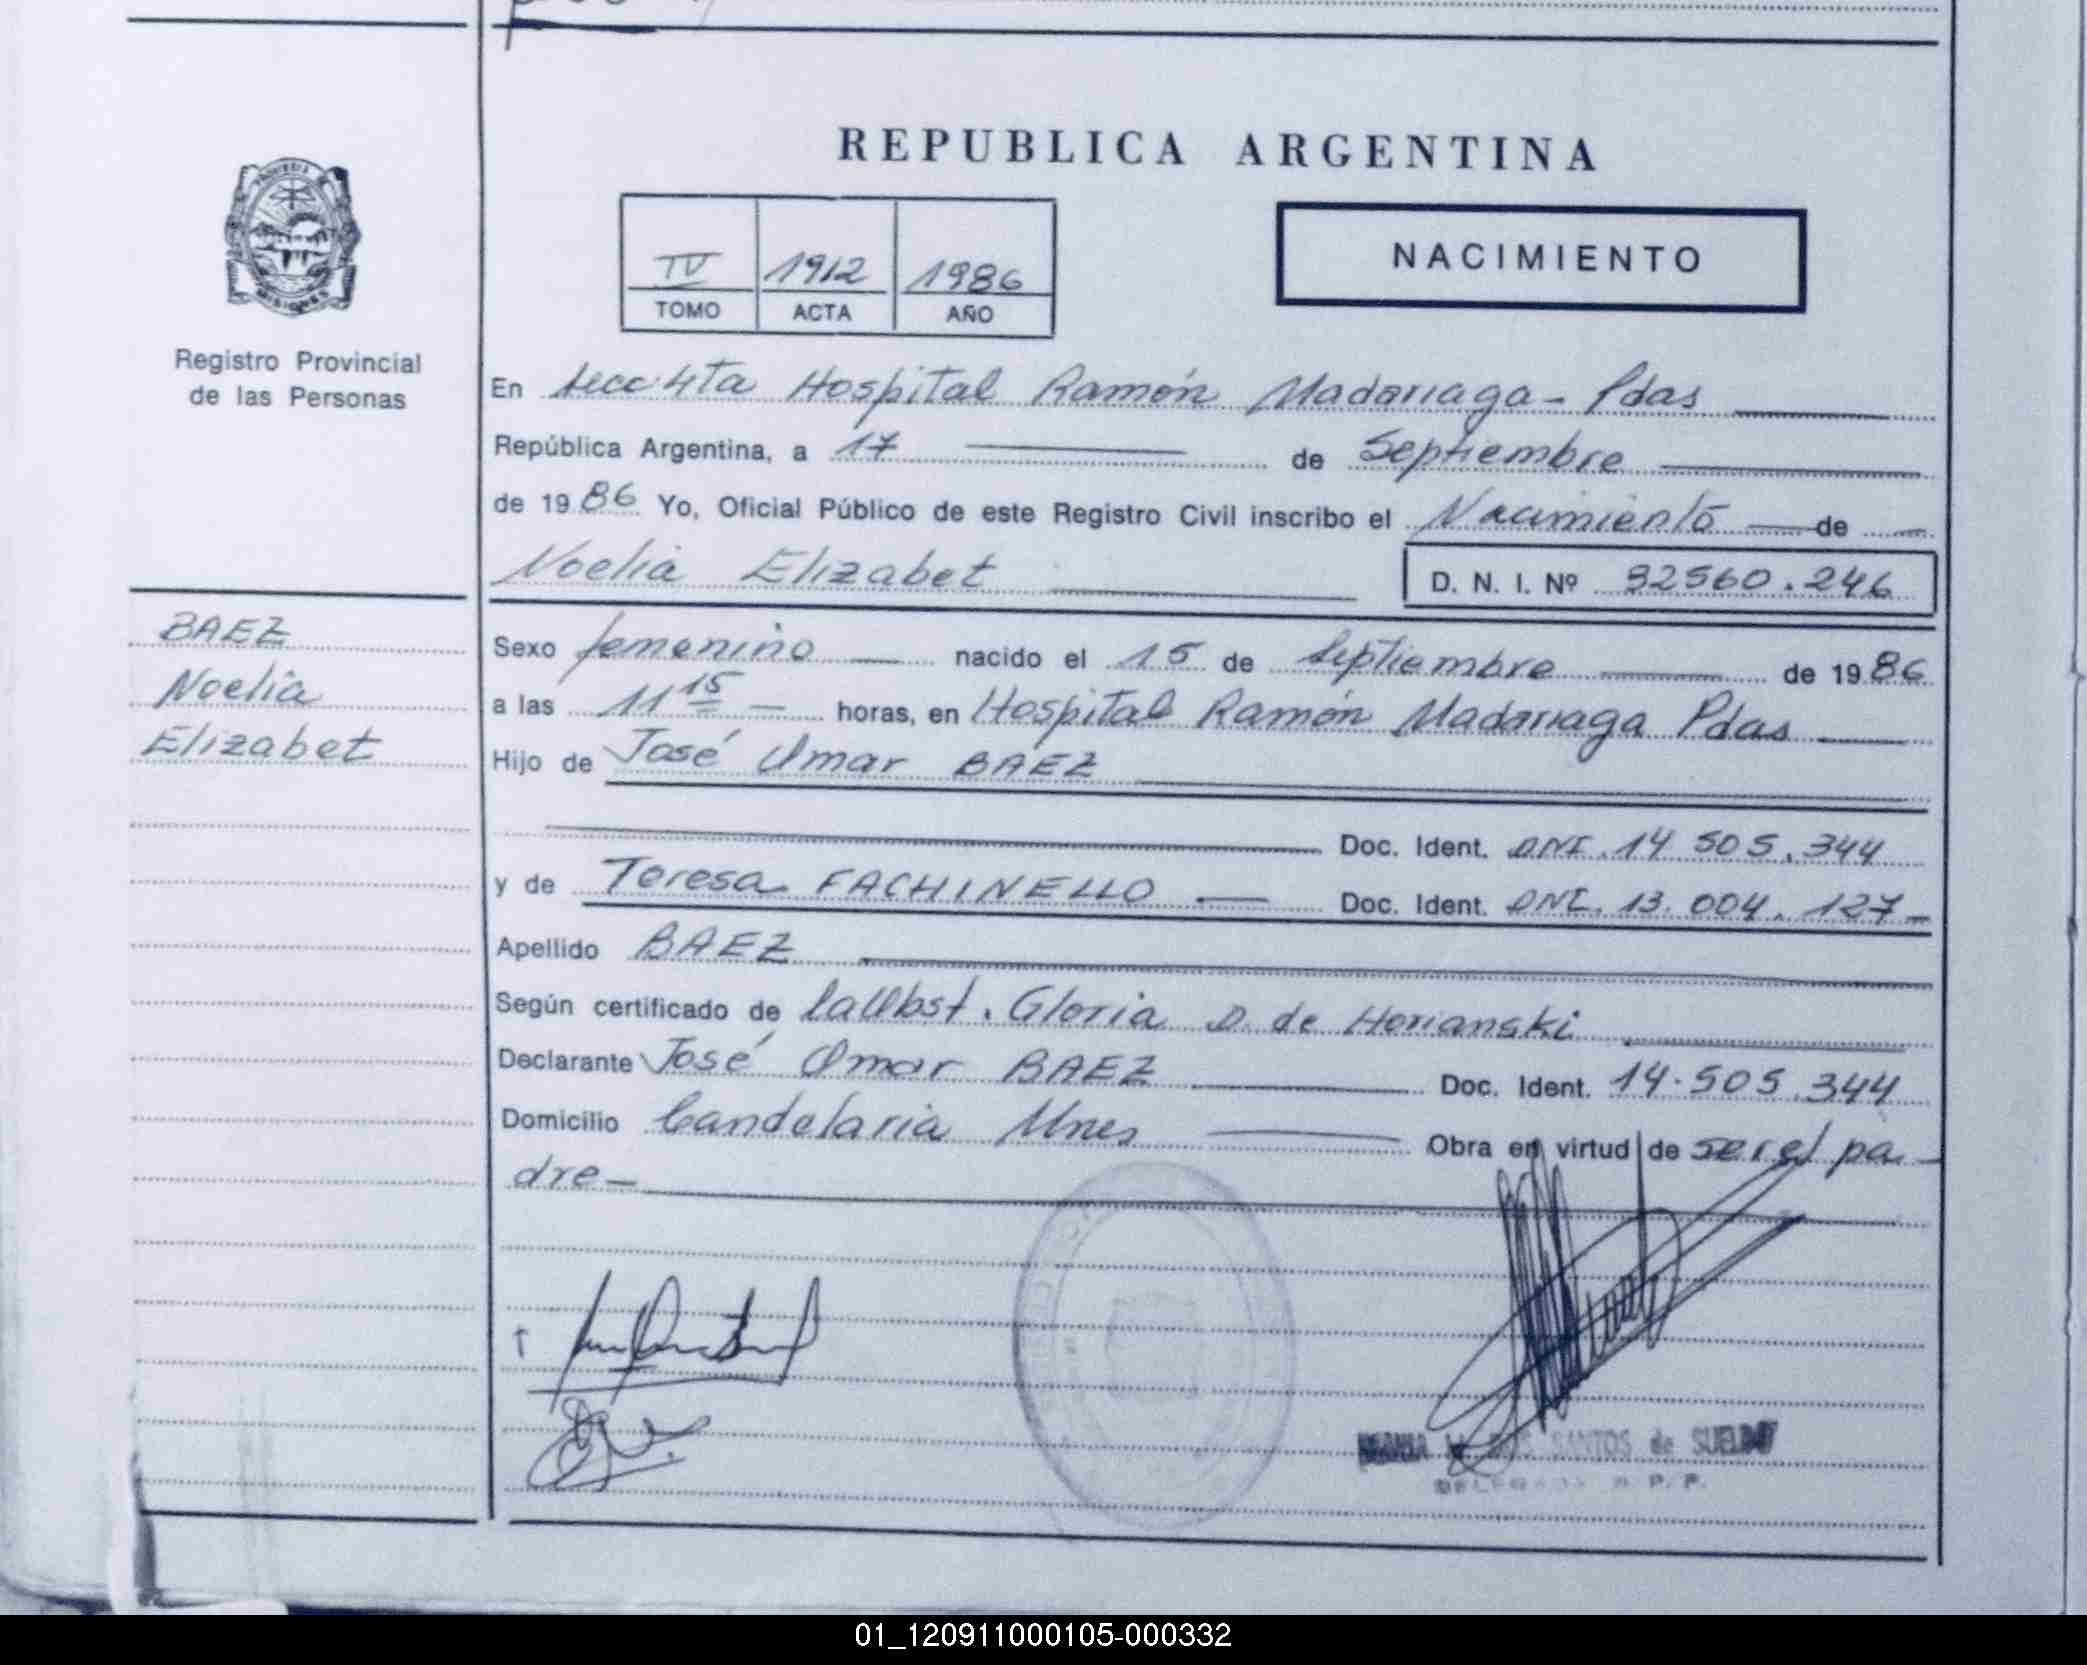 REPUBLICA ARGENTINA
IV 1912 1986
TOMO ACTA AÑO
NACIMIENTO
Registro Provincial
de las Personas
En Secc 4ta Hospital Ramón Madariaga - Pdas
República Argentina, a 17 de Septiembre
de 1986 Yo, Oficial Público de este Registro Civil inscribo el Nacimiento de
Noelia Elizabet D. N. I. Nº 32560.246
BAEZ
Noelia
Elizabet
Sexo femenino nacido el 15 de Septiembre de 1986
a las 11 15 horas, en Hospital Ramón Madariaga Pdas
Hijo de José Omar BAEZ
Doc. Ident. DNI. 14 505.344
y de Teresa FACHINELLO Doc. Ident. DNI. 13.004.127
Apellido BAEZ
Según certificado de la Obst. Gloria D. de Horianski
Declarante José Omar BAEZ Doc. Ident. 14.505.344
Domicilio Candelaria Mnes Obra en virtud de ser el pa-
dre
SANTOS de
01_120911000105-000332